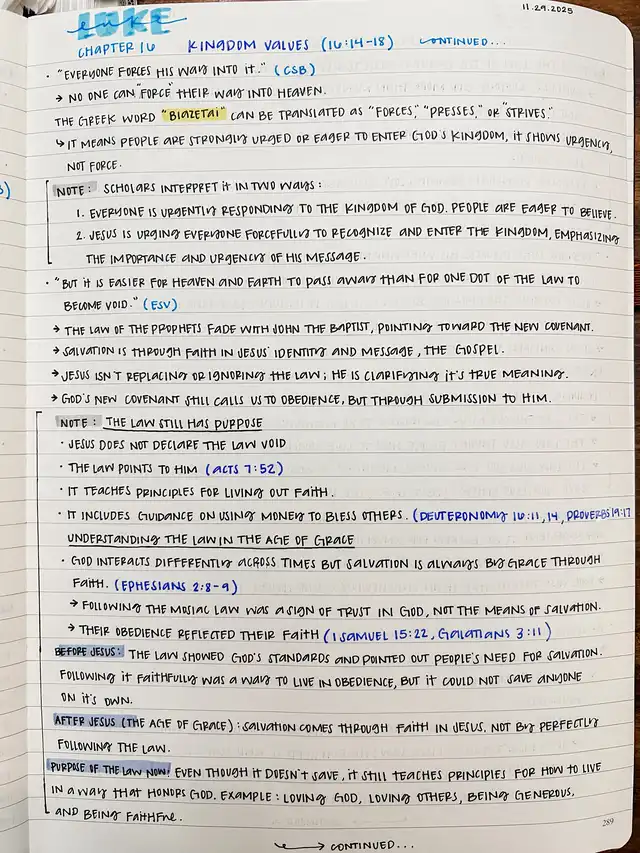 11.29.2025
LUKE
luke
CHAPTER 16 KINGDOM VALUES (16:14-18) CONTINUED...
• "EVERYONE FORCES HIS WAY INTO IT." (CSB)
→ NO ONE CAN "FORCE" THEIR WAY INTO HEAVEN.
THE GREEK WORD "BIAZETAI" CAN BE TRANSLATED AS "FORCES," "PRESSES," OR "STRIVES."
↳ IT MEANS PEOPLE ARE STRONGLY URGED OR EAGER TO ENTER GOD'S KINGDOM, IT SHOWS URGENCY,
NOT FORCE.
NOTE: SCHOLARS INTERPRET IT IN TWO WAYS:
1. EVERYONE IS URGENTLY RESPONDING TO THE KINGDOM OF GOD. PEOPLE ARE EAGER TO BELIEVE.
2. JESUS IS URGING EVERYONE FORCEFULLY TO RECOGNIZE AND ENTER THE KINGDOM, EMPHASIZING
THE IMPORTANCE AND URGENCY OF HIS MESSAGE.
• "BUT IT IS EASIER FOR HEAVEN AND EARTH TO PASS AWAY THAN FOR ONE DOT OF THE LAW TO
BECOME VOID." (ESV)
→ THE LAW OF THE PROPHETS FADE WITH JOHN THE BAPTIST, POINTING TOWARD THE NEW COVENANT.
→ SALVATION IS THROUGH FAITH IN JESUS' IDENTITY AND MESSAGE, THE GOSPEL.
→ JESUS ISN'T REPLACING OR IGNORING THE LAW; HE IS CLARIFYING IT'S TRUE MEANING.
→ GOD'S NEW COVENANT STILL CALLS US TO OBEDIENCE, BUT THROUGH SUBMISSION TO HIM.
NOTE: THE LAW STILL HAS PURPOSE
• JESUS DOES NOT DECLARE THE LAW VOID
• THE LAW POINTS TO HIM (ACTS 7:52)
• IT TEACHES PRINCIPLES FOR LIVING OUT FAITH.
• IT INCLUDES GUIDANCE ON USING MONEY TO BLESS OTHERS. (DEUTERONOMY 16:11,14, PROVERBS 19:17
UNDERSTANDING THE LAW IN THE AGE OF GRACE
• GOD INTERACTS DIFFERENTLY ACROSS TIMES BUT SALVATION IS ALWAYS BY GRACE THROUGH
FAITH. (EPHESIANS 2:8-9)
→ FOLLOWING THE MOSIAC LAW WAS A SIGN OF TRUST IN GOD, NOT THE MEANS OF SALVATION.
→ THEIR OBEDIENCE REFLECTED THEIR FAITH (1 SAMUEL 15:22, GALATIANS 3:11)
BEFORE JESUS: THE LAW SHOWED GOD'S STANDARDS AND POINTED OUT PEOPLE'S NEED FOR SALVATION.
FOLLOWING IT FAITHFULLY WAS A WAY TO LIVE IN OBEDIENCE, BUT IT COULD NOT SAVE ANYONE
ON IT'S OWN.
AFTER JESUS (THE AGE OF GRACE): SALVATION COMES THROUGH FAITH IN JESUS. NOT BY PERFECTLY
FOLLOWING THE LAW.
PURPOSE OF THE LAW NOW: EVEN THOUGH IT DOESN'T SAVE, IT STILL TEACHES PRINCIPLES FOR HOW TO LIVE
IN A WAY THAT HONORS GOD. EXAMPLE: LOVING GOD, LOVING OTHERS, BEING GENEROUS,
AND BEING FAITHFUL.
289
→ CONTINUED...